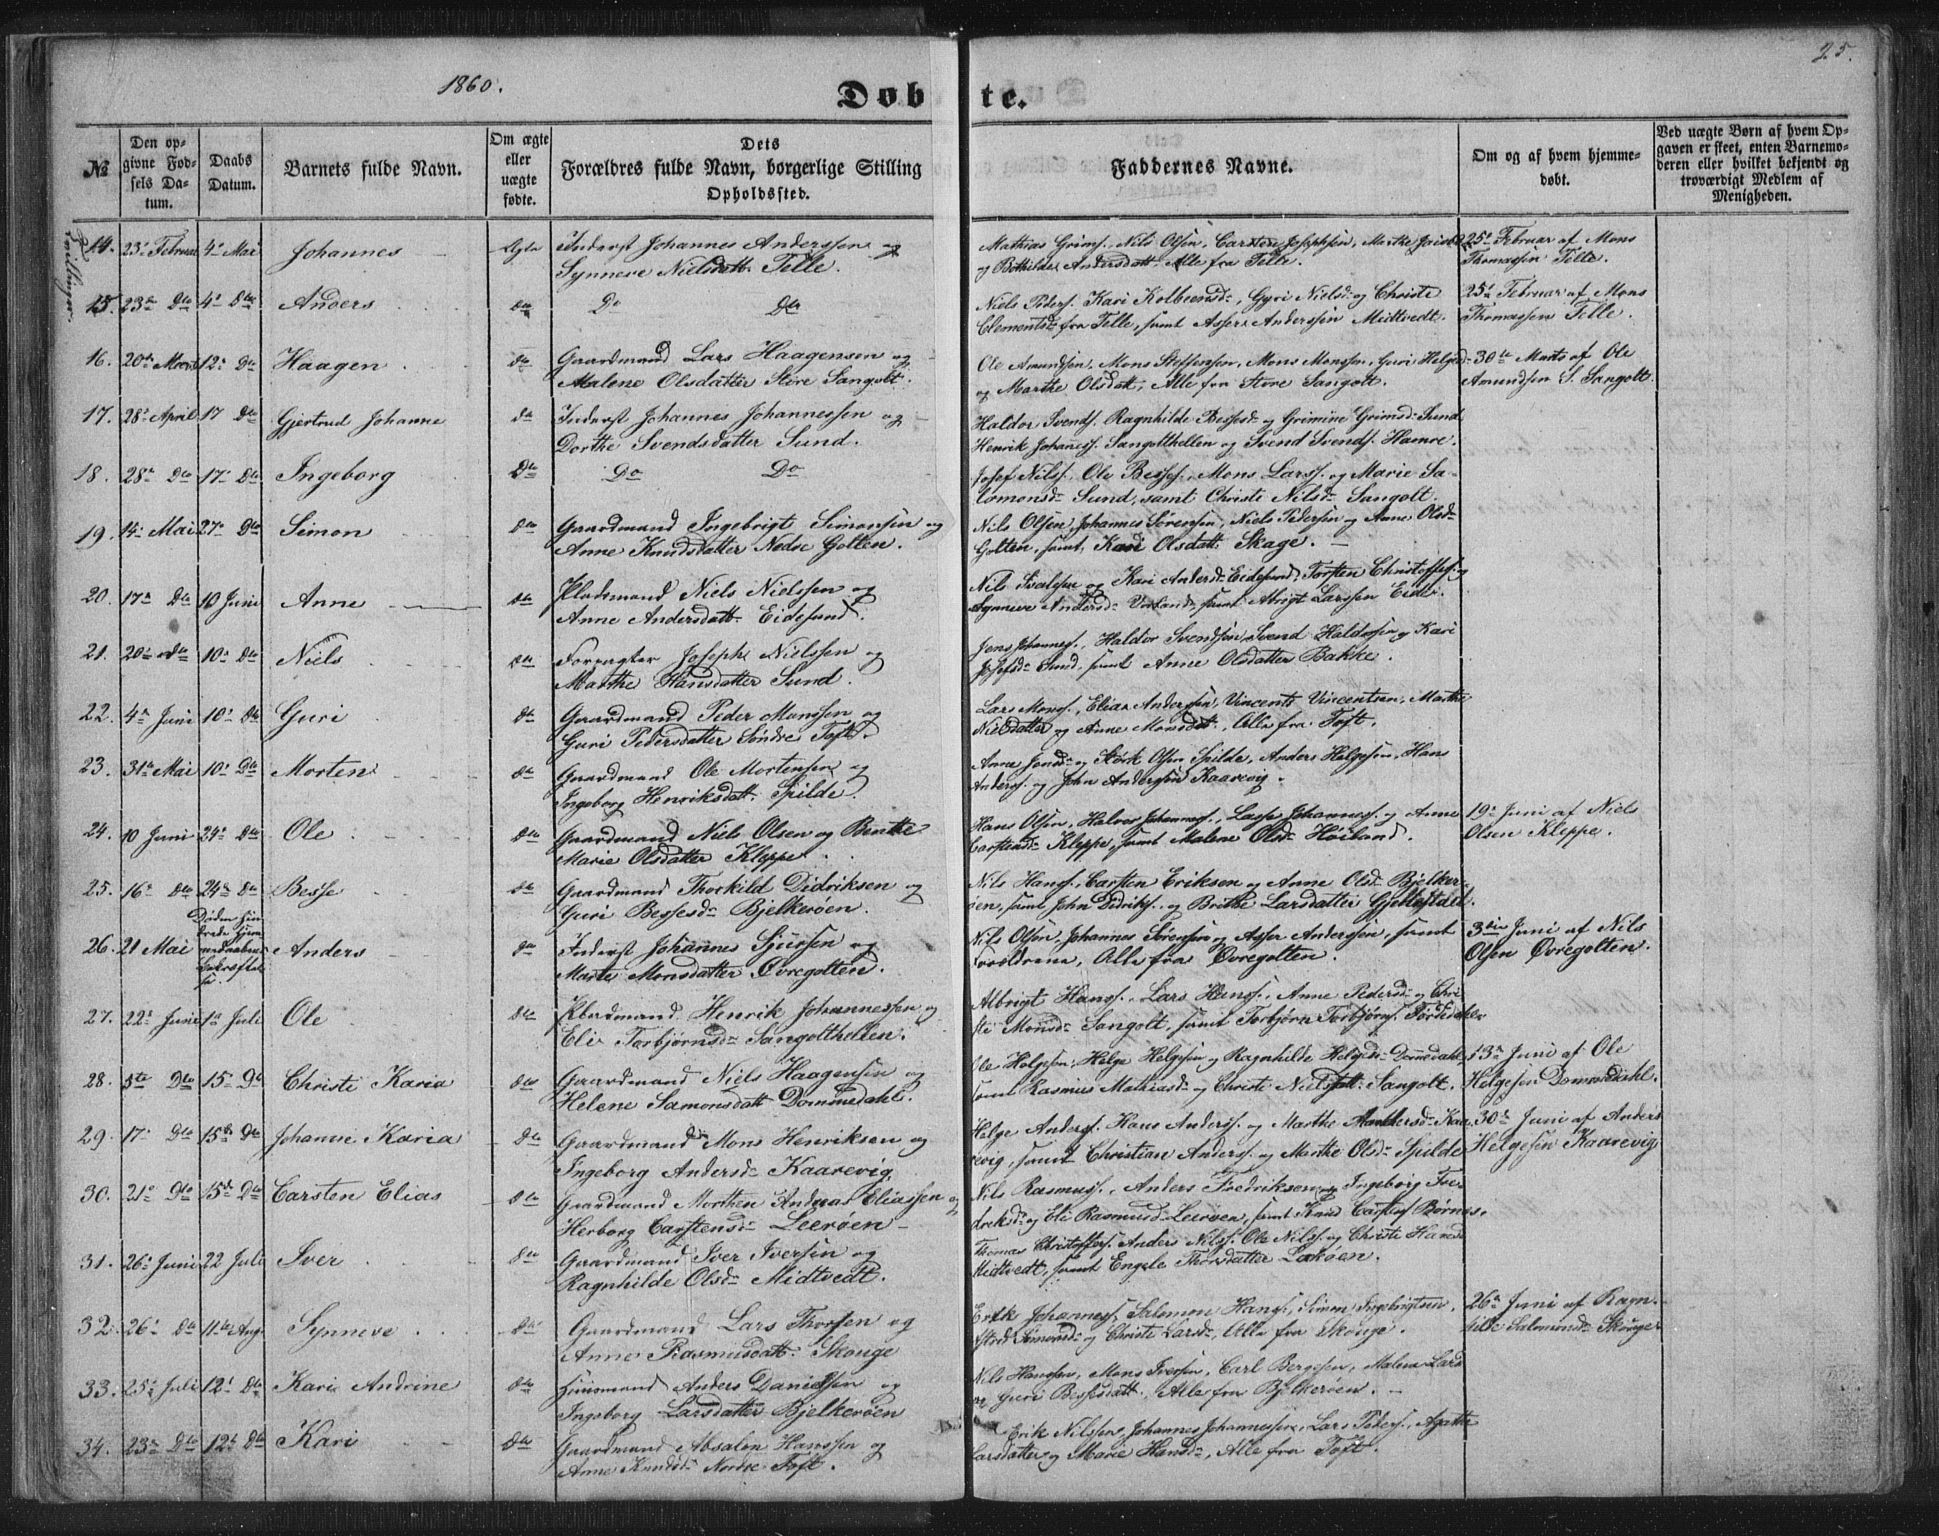 1860.
25.
Døbte.
№
Den opgivne Fødsels Datum.
Daabs Datum.
Barnets fulde Navn.
Om ægte eller uægte fødte.
Dets Forældres fulde Navn, borgerlige Stilling Opholdssted.
Faddernes Navne.
Om og af hvem hjemmedøbt.
Ved uægte Børn af hvem Opgaven er skeet, enten Barnemoderen eller hvilket bekjendt og troværdigt Medlem af Menigheden.
Tvillinger.
14. 23' Februar 4' Mai Johannes Ægte Inderst Johannes Anderssen og
Synneve Nielsdatt. Telle.
Mathias Grims. Nils Olsen, Carsten Josephsen, Marthe Jacobsd.
og Bothilde Andersdatt. Alle fra Telle.
25' Februar af Mons
Thomassen Telle.
15. 23de Dto 4' Dto Anders Dto Do Dto
Niels Peders. Kari Kolbeensd., Gyri Nielsd. og Christi
Clementsd. fra Telle, samt Asser Anderssen Midtvedt.
25' Februar af Mons
Thomassen Telle.
16. 20de Marts 12' Dto Haagen Dto Gaardmand Lars Haagensen og
Malene Olsdatter Store Sangolt.
Ole Amundsen, Mons Steffensen, Mons Monssen, Guri Helgesd.
og Marthe Olsdat., Alle fra Store Sangolt.
30te Marts af Ole
Amundsen S. Sangolt.
17. 28' April 17 Dto Gjertrud Johanne Dto Inderst Johannes Johannessen og
Dorthe Svendsdatter Sund.
Haldor Svends. Ragnhilde Bessesd. og Grimine Grimsd. Sund
Henrik Johaness. Sangolthellen og Svend Svends. Hamre.
18. 28de Dto 17' Dto Ingeborg Dto Do Do
Josef Nils. Ole Besses., Mons Larss. og Marie Sa-
lomonsd. Sund, samt Christi Nilsd. Sangolt.
19. 14' Mai 27' Dto Simon Dto Gaardmand Ingebrigt Simonsen og
Anne Knudsdatter Nedre Golten.
Nils Olsen, Johannes Sørensen, Niels Pedersen og Anne Olsd.
Golten, samt Kari Olsdatt. Skage.
20. 17de Dto 10 Juni Anne Dto Pladsmand Niels Nielssen og
Anne Andersdatt. Eidesund.
Nils Ivarsen og Kari Andersd. Eidesund, Torsten Christoffers. og
Synneve Andersd. Vorland, samt Abrigt Larssen Eide.
21. 20de Dto 10' Dto Niels Dto Forpagter Joseph Nielssen og
Marthe Hansdatter Sund.
Jens Johannes., Haldor Svendsen, Svend Haldorsen og Kari
Josefsd. Sund, samt Anne Olsdatter Bakke.
22. 4de Juni 10' Dto Guri Dto Gaardmand Peder Monssen og
Guri Pedersdatter Søndre Toft.
Lars Mons., Elias Anderssen, Vincents Vincentsen, Marthe
Nielsdatter og Anne Monsdat., Alle fra Toft.
23. 31te Mai 10' Dto Morten Dto Gaardmand Ole Mortensen og
Ingeborg Henriksdatt. Spilde.
Anna Jonsd. og Størk Olsen Spilde, Anders Helgesen, Hans
Anders. og John Anderssen Kaarevig.
24. 10 Juni 24' Dto Ole Dto Gaardmand Niels Olsen og Birthe
Marie Olsdatter Kleppe.
Hans Olsen, Halvor Johannes., Lasse Johanness. og Anne
Carstensd. Kleppe, samt Malene Olsd. Høiland.
19' Juni af Niels
Olsen Kleppe.
25. 16' Dto 24de Dto Besse Dto Gaardmand Thorkild Didriksen og
Guri Bessesd. Bjelkerøen.
Nils Hans., Carsten Eriksen og Anne Olsd. Bjelker-
øen, samt John Didriks. og Brithe Larsdatter Gjeltefdal.
26. 21 Mai Døden hin-
drede Hjem-
medaabens
Bekræftel-
se. Anders Dto Inderst Johannes Sjursen og
Marte Monsdatter Øvregolten.
Nils Olsen, Johannes Sørensen og Asser Anderssen, samt
Forældrene, Alle fra Øvregolten.
3die Juni af Nils
Olsen Øvregolten.
27. 22' Juni 1' Juli Ole Dto Huusmand Henrik Johannessen og
Eli Torbjørnsd. Sangolthellen.
Albrigt Hans., Lars Hans., Anne Pedersd. og Chri-
sti Monsd. Sangolt, samt Torbjørn Torbjørns. Førdedalen
28. 8te Dto 15' Dto Christi Karia Dto Gaardmand Niels Haagensen og
Helene Samonsdatt. Dommedahl.
Ole Helgesen, Helge Helgesen og Ragnhilde Helgesd. Dommedahl,
samt Rasmus Mathiasd. og Christi Nielsdatt. Sangolt.
13de Juni af Ole
Helgesen Dommedahl.
29. 17' Dto 15de Dto Johanne Karia Dto Gaardmand Mons Henriksen og
Ingeborg Andersd. Kaarevig.
Helge Anders. Hans Anders. og Marthe Andersd. Kaa-
revig, samt Christian Anders. og Marthe Olsd. Spilde
30' Juni af Anders
Helgesen Kaarevig
30. 21' Dto 15de Dto Carsten Elias Dto Gaardmand Morthen Andreas Eliassen og
Herborg Carstensd. Leerøen
Nils Rasmus., Anders Fredriksen og Ingeborg Fre-
driksd. og Eli Rasmusd. Leerøen, samt Knud Carstens. Børnæs.
31. 26' Juni 22 Juli Iver Dto Gaardmand Iver Iversen og
Ragnhilde Olsd. Midtvedt.
Thomas Christoffers. Anders Nils., Ole Nils. og Christi Hansd.
Midtvedt, samt Engele Thorsdatter Lerøen.
32. 26' Dto 11te Aug. Synneve Dto Gaardmand Lars Thorsen og
Anne Rasmusdatt. Skouge
Erik Johannes. Salomon Hans., Simon Ingebrigtsen,
Astrid Simonsd. og Christi Larsd., Alle fra Skouge.
26de Juni af Ragn-
hilde Salomonsd. Skouge
33. 25' Juli 12' Dto Karie Andrine Dto Huusmand Anders Danielsen og
Ingeborg Larsdatter Bjelkerøen
Nils Hanssen, Mons Iversen, Carl Bergesen, Malene Larsd.
og Guri Bessesdatt., Alle fra Bjelkerøen.
34. 23de Dto 12' Dto Kari Dto Gaardmand Absalon Hanssen og
Anne Knudsd. Nordre Toft.
Erik Nilssen, Johannes Johannessen, Lars Peders., Agathe
Larsdatter og Marie Hansd., Alle fra Toft.